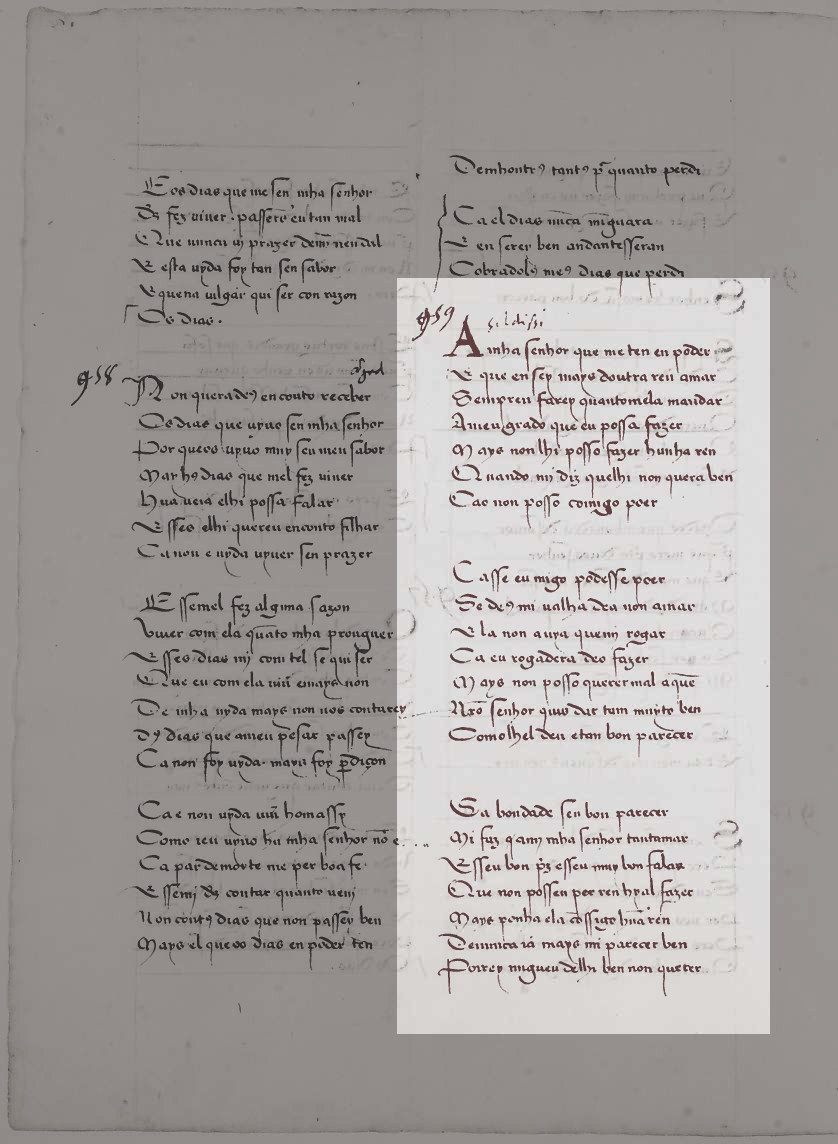 E os dias que me sen mha senhor
d's fez viuer . passeros eu tan mal
Que nunca uj prazer demj nen dal
E esta uyda foy tan sen sabor
E quena uilgar qui ser con razon
Os dias .
938
Non querades en conto receber
Os dias que uyuo sen mha senhor
Por queos uyuo muy seu meu sabor
Mar hꝯ dias que mel fez viuer
Hu a ueia elhi possa falar
Esses elhi quereu en conto filhar
Ca non e uyda uyuer sen prazer
E ssemel fez alguma sazon
Viuer com ela qua̅to mha prouguer
Esses dias mj com tel se qui ser
Que eu com ela uiui̅ emays non
De mha uyda mays non uos contarey
dꝯ dias que ameu pesar passey
Ca non foy uyda . mays foy p̱diçon
Ca e non uyda uiui̅ homassy
Como ieu uyuo hu mha senhor no̅ e
Ca par demorte me per boa fe .
E ssemj d's contar quanto uenj
Non contꝯ dias que non passey ben
Mays el queos dias en poder ten
Demhontrꝯ tantꝯ p̱ quanto perdi
Ca el dias nu̅ca mi̅guara
E en serey ben andantesseran
Cobradolꝯ meꝯ dias que perdi
939
A mha senhor que me ten en poder
E que en sey mays doutra ren amar
Sempreu farey quantomela mandar
Ameu grado que eu possa fazer
Mays non lhi posso fazer hunha ren
Quando mj diz quelhi non quera ben
Cao non posso comigo poer
Casse eu migo podesse poer
Se deꝯ mi ualha dea non amar
Ela non auya quemj rogar
Ca eu rogadera deo fazer
Mays non posso querer mal a que̅
Nr̅o senhor quis dar tam muyto ben
Comolhel deu etan bon parecer
Sa bondade seu bon parecer
Mi faz q̇ amj mha senhor tantamar
Esseu bon p̅z esseu muy bon falar
Que non possen per ren hyal fazer
Mays ponha ela co̅ssigo hu̅a ren
Demnica ia mays mi parecer ben
Porrey migueu delhi ben non querer